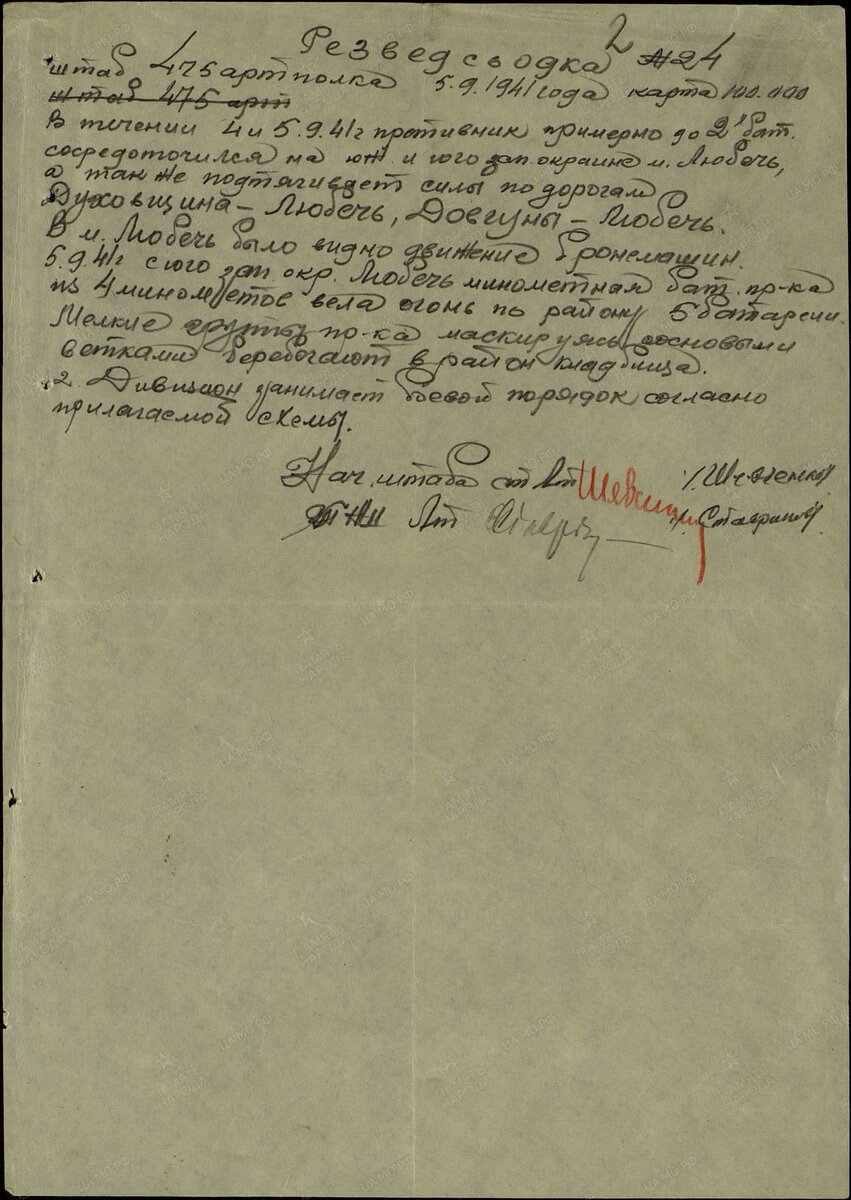 2
Резвед сьодка №24
штаб 475 артполка 5.9.1941 года карта 100.000
штаб 475 арт
В течении 4 и 5.9.41г противник примерно до 2х бат.
сосредоточился на юж. и юго зап. окраине м. Любечь,
а так же подтягивает силы по дорогам
Духовщина – Любечь, Довгуны – Любечь.
В м. Любечь было видно движение бронемашин.
5.9.41г с юго зап окр. Любечь минометная бат. пр-ка
из 4 минометов вела огонь по району 5 батареи.
Мелкие группы пр-ка маскируясь сосновыми
ветками беребегают в район кладбища.
2. Дивизион занимает боевой порядок согласно
прилагаемой схемы.
Нач. штаба ст Лт Шевченко /Шевченко/
Лт /Ставринов/
ЦАМО.РФ
ПАМЯТЬ НАРОДА